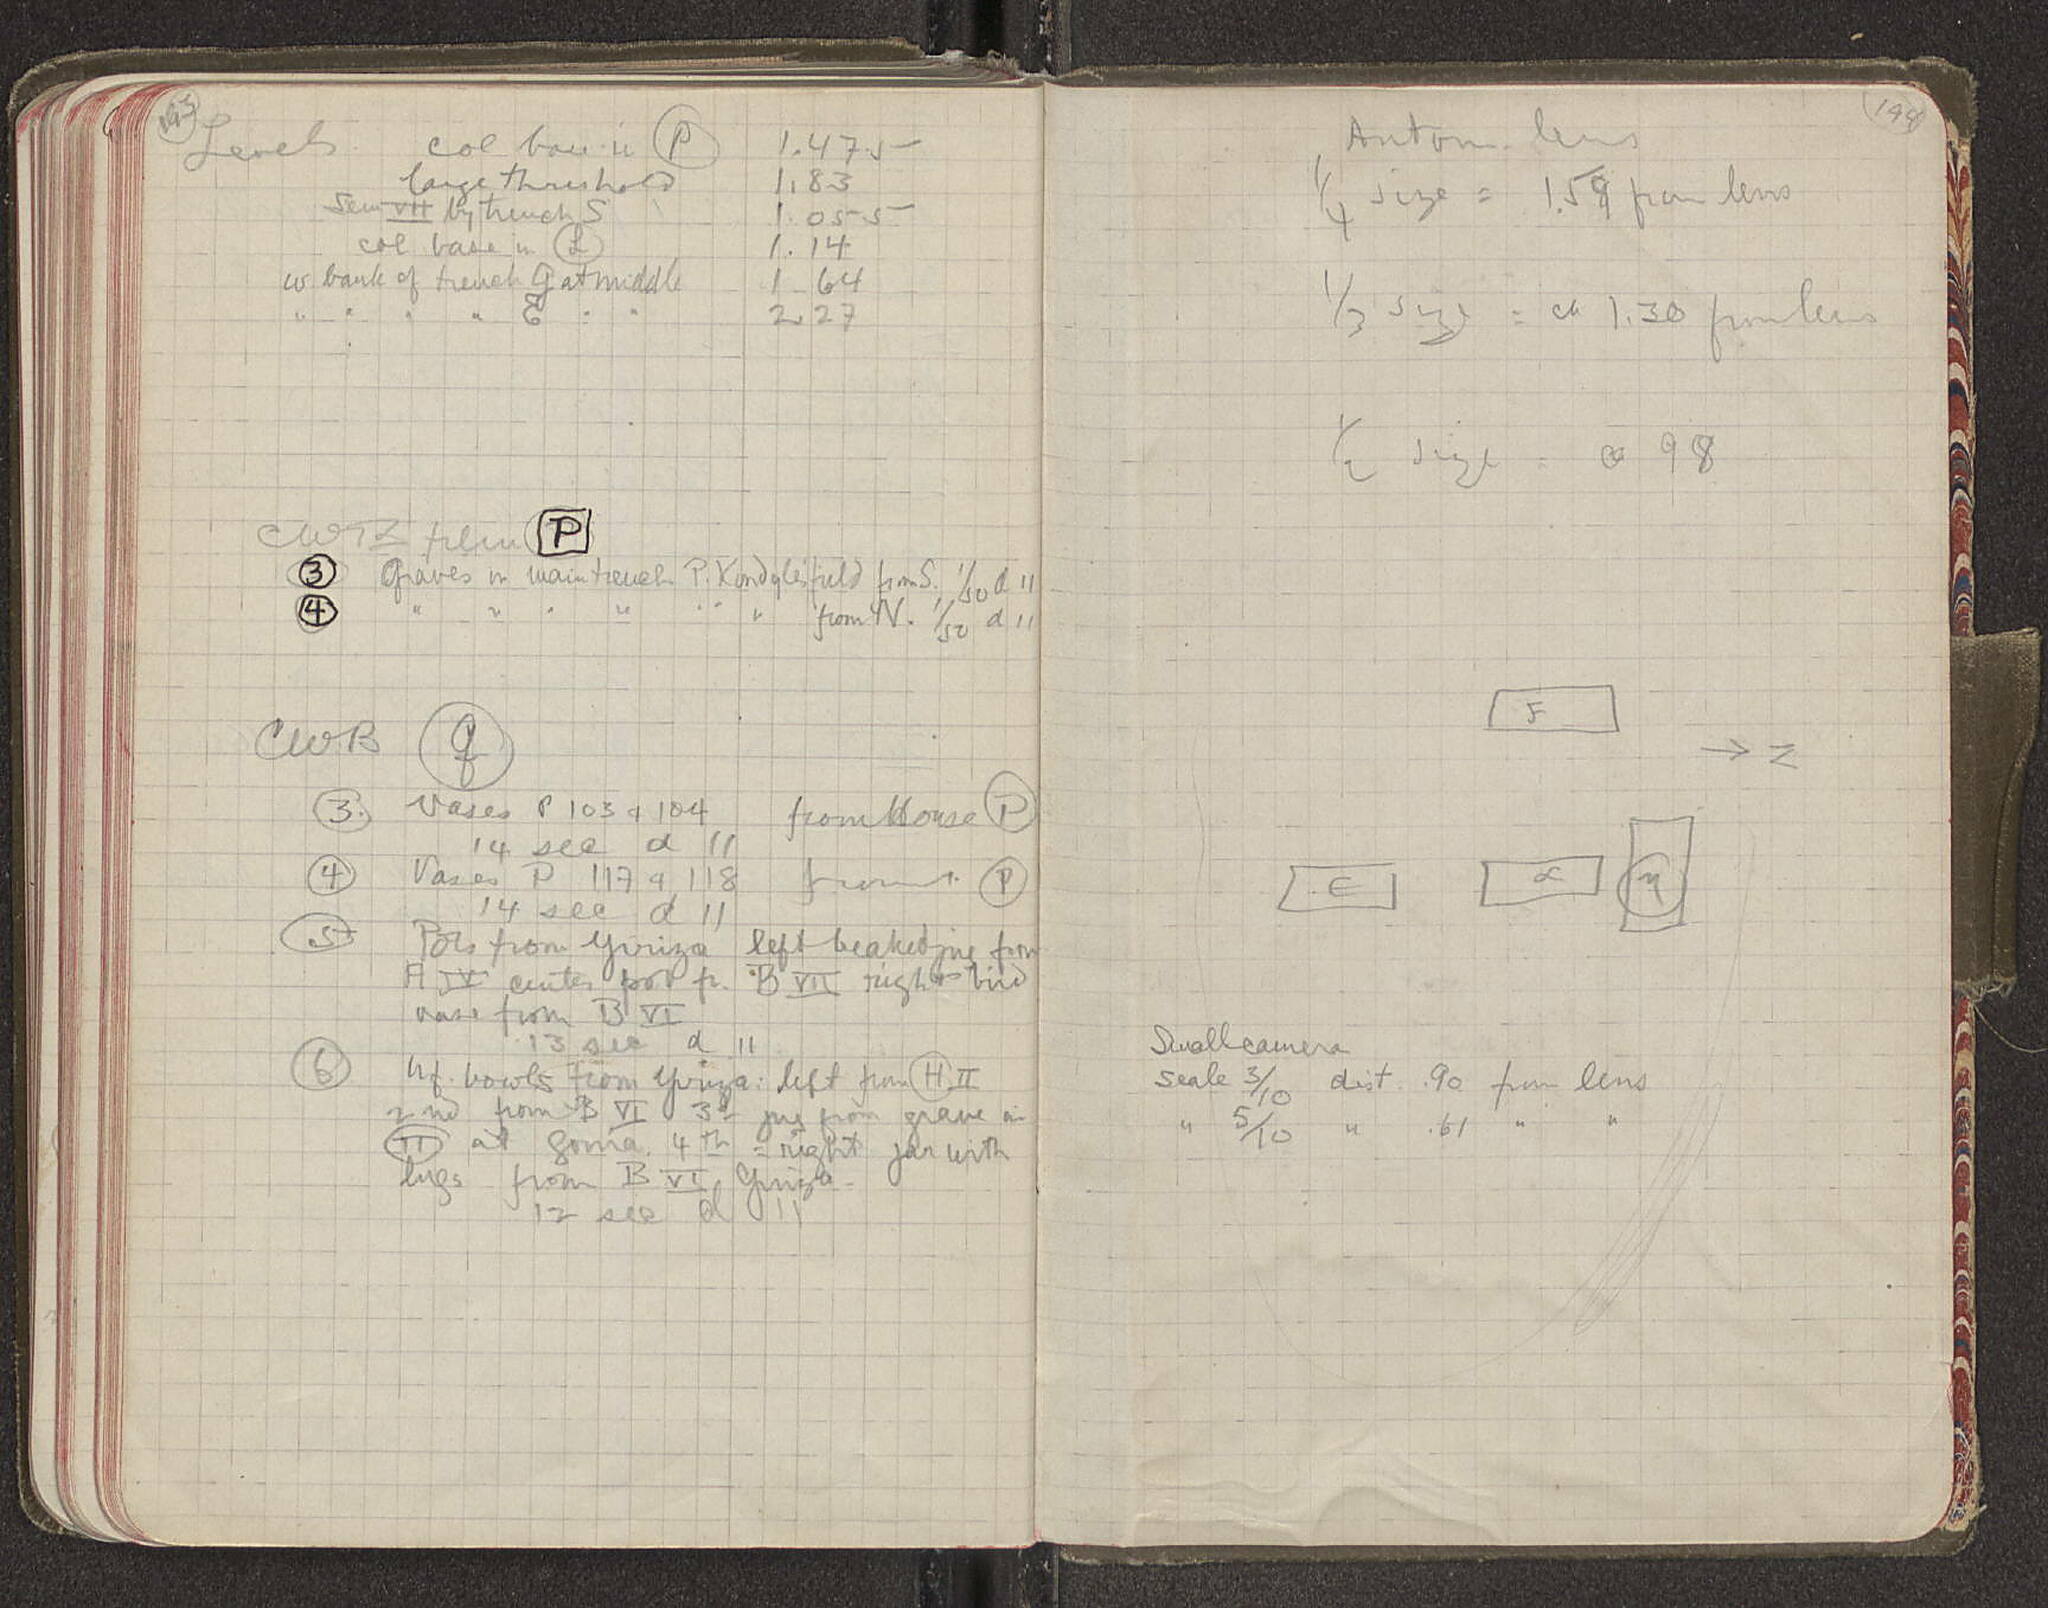 193
Levels col base in P 1.475
large threshold 1.83
Sem VII by trench S 1.055
col base in L 1.14
w. bank of trench G at middle 1.64
" " " " E " " 2.27
CWB film P
3 Graves in main trench P. Kondyles field from S. 1/50 d 11
4 " " " " " " " from N. 1/50 d 11
CWB Q
3. Vases P 103 & 104 from House P
14 sec d 11
4 Vases P 117 & 118 from P
14 sec d 11
5 Pots from Yiriza left beaked jug from
A IV center pot fr. B VII right bird
vase from B VI
13 sec d 11
6 bowls from Yiriza: left from H II
2nd from B VI 3d jug from grave in
II at Gonia. 4th = right jar with
lugs from B VI Yiriza
12 sec d 11
194
Autom. lens
1/4 size = 1.59 from lens
1/3 size = 1.30 from lens
1/2 size = 98
F
→ Z
E α η
Small camera
scale 3/10 dist .90 from lens
" 5/10 " .61 " "